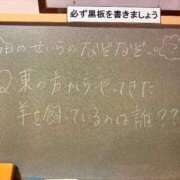 必ず黒板を書きましょう
今日のせいらのなぞなぞ〜
Q東の方からやってきた
羊を飼っているのは誰??